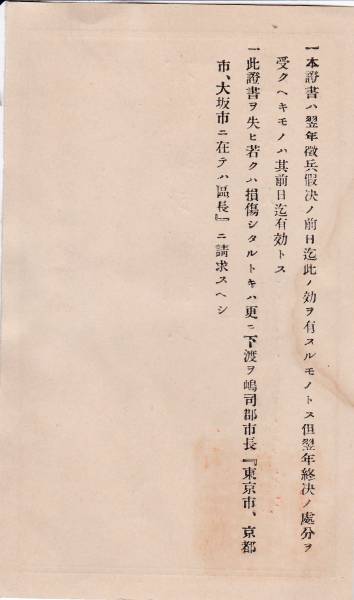 一本證書ハ翌年徵兵假决ノ前日迄此ノ効ヲ有スルモノトス但翌年終决ノ處分ヲ
受クヘキモノハ其前日迄有効トス
一此證書ヲ失ヒ若クハ損傷シタルトキハ更ニ下渡ヲ嶋司郡市長『東京市、京都
市、大坂市ニ在テハ區長』ニ請求スヘシ